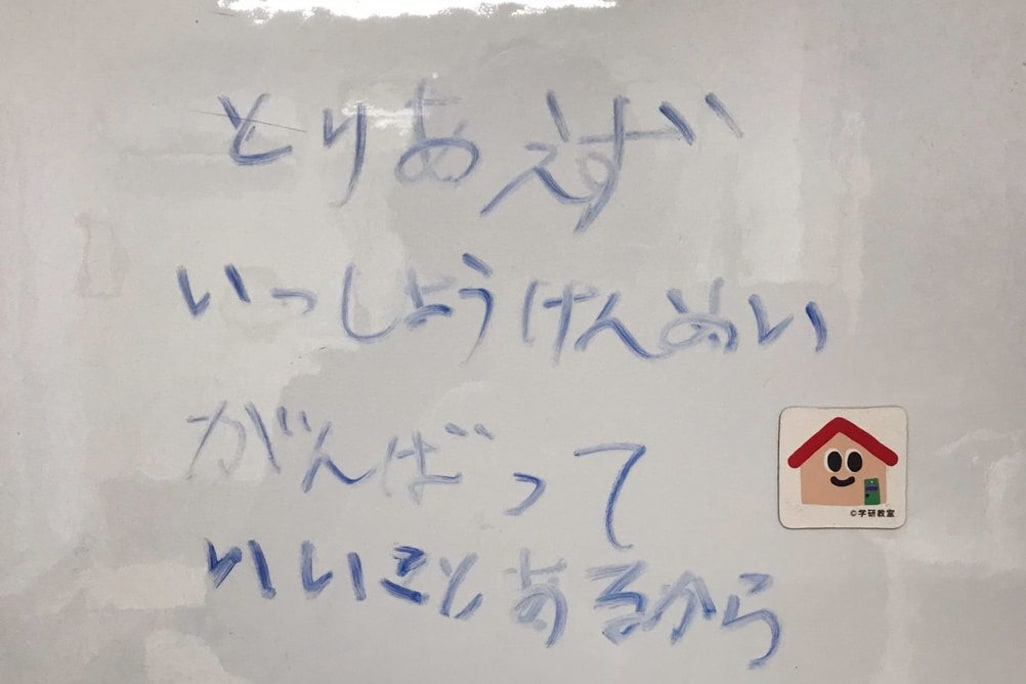 とりあえず
いっしょうけんめい
がんばって
いいことあるから
©学研教室